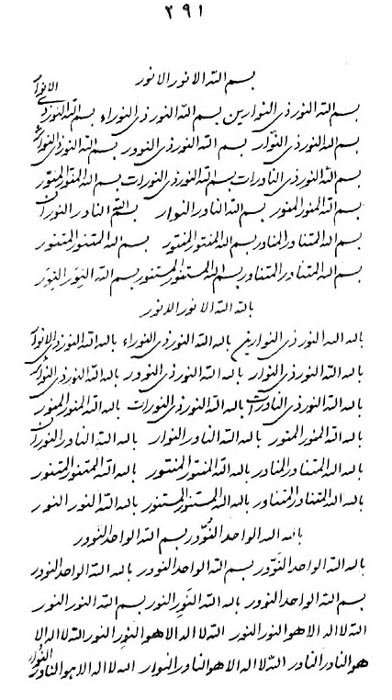 ٢٩١
بسم الله الانور الانور
بسم الله النور ذی النوارین بسم الله النور ذی النوراء بسم الله النور ذی الانوار
بسم الله النور ذی النوار بسم الله النور ذی النوور بسم الله النور ذی
بسم الله النور ذی النادرات بسم الله النور ذی النورات بسم الله المنور المنور
بسم الله المنور المنور بسم الله الناور النوار بسم الله الناور النوران
بسم الله المتناور المناور بسم الله المنتور المنتور بسم الله المتنور المتنور
بسم الله المتناور المتناور بسم الله المستنور المستنور بسم الله النیور النیور
بالله الله الانور الانور
بالله الله النور ذی النوارین بالله الله النور ذی النوراء بالله الله النور ذی الانوار
بالله الله النور ذی النوار بالله الله النور ذی النوور بالله الله النور ذی
بالله الله النور ذی النادرات بالله الله النور ذی النورات بالله الله المنور المنور
بالله الله المنور المنور بالله الله الناور النوار بالله الله الناور النوران
بالله الله المتناور المناور بالله الله المنتور المنتور بالله الله المتنور المتنور
بالله الله المتناور المتناور بالله الله المستنور المستنور بالله الله النور النور
بالله الله الواحد النوور بسم الله الواحد النوور
بالله الله الواحد النوور بسم الله الواحد النوور بالله الله الواحد النوور
بسم الله الواحد النوور بالله الله النور النور بسم الله النور النور
الله لا اله الا هو النور النور الله لا اله الا هو النور النور الله لا اله الا
هو الناور الناور الله لا اله الا هو الناور النوار الله لا اله الا هو الناور النوار